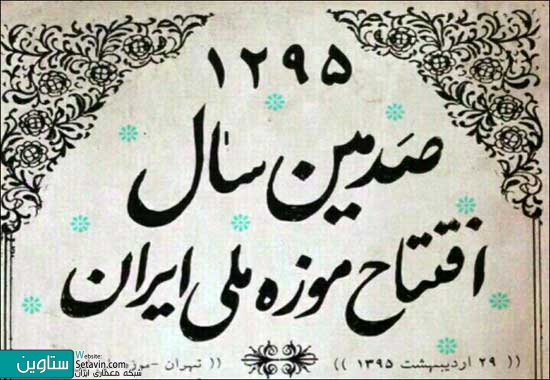 ۱۲۹۵
صدمین سال
افتتاح موزه ملی ایران
(( ۲۹ اردیبهشت ۱۳۹۵ ))
(( تهران - موزه
ستاوین
Website:
Setavin.com
شبکه معماری ایران